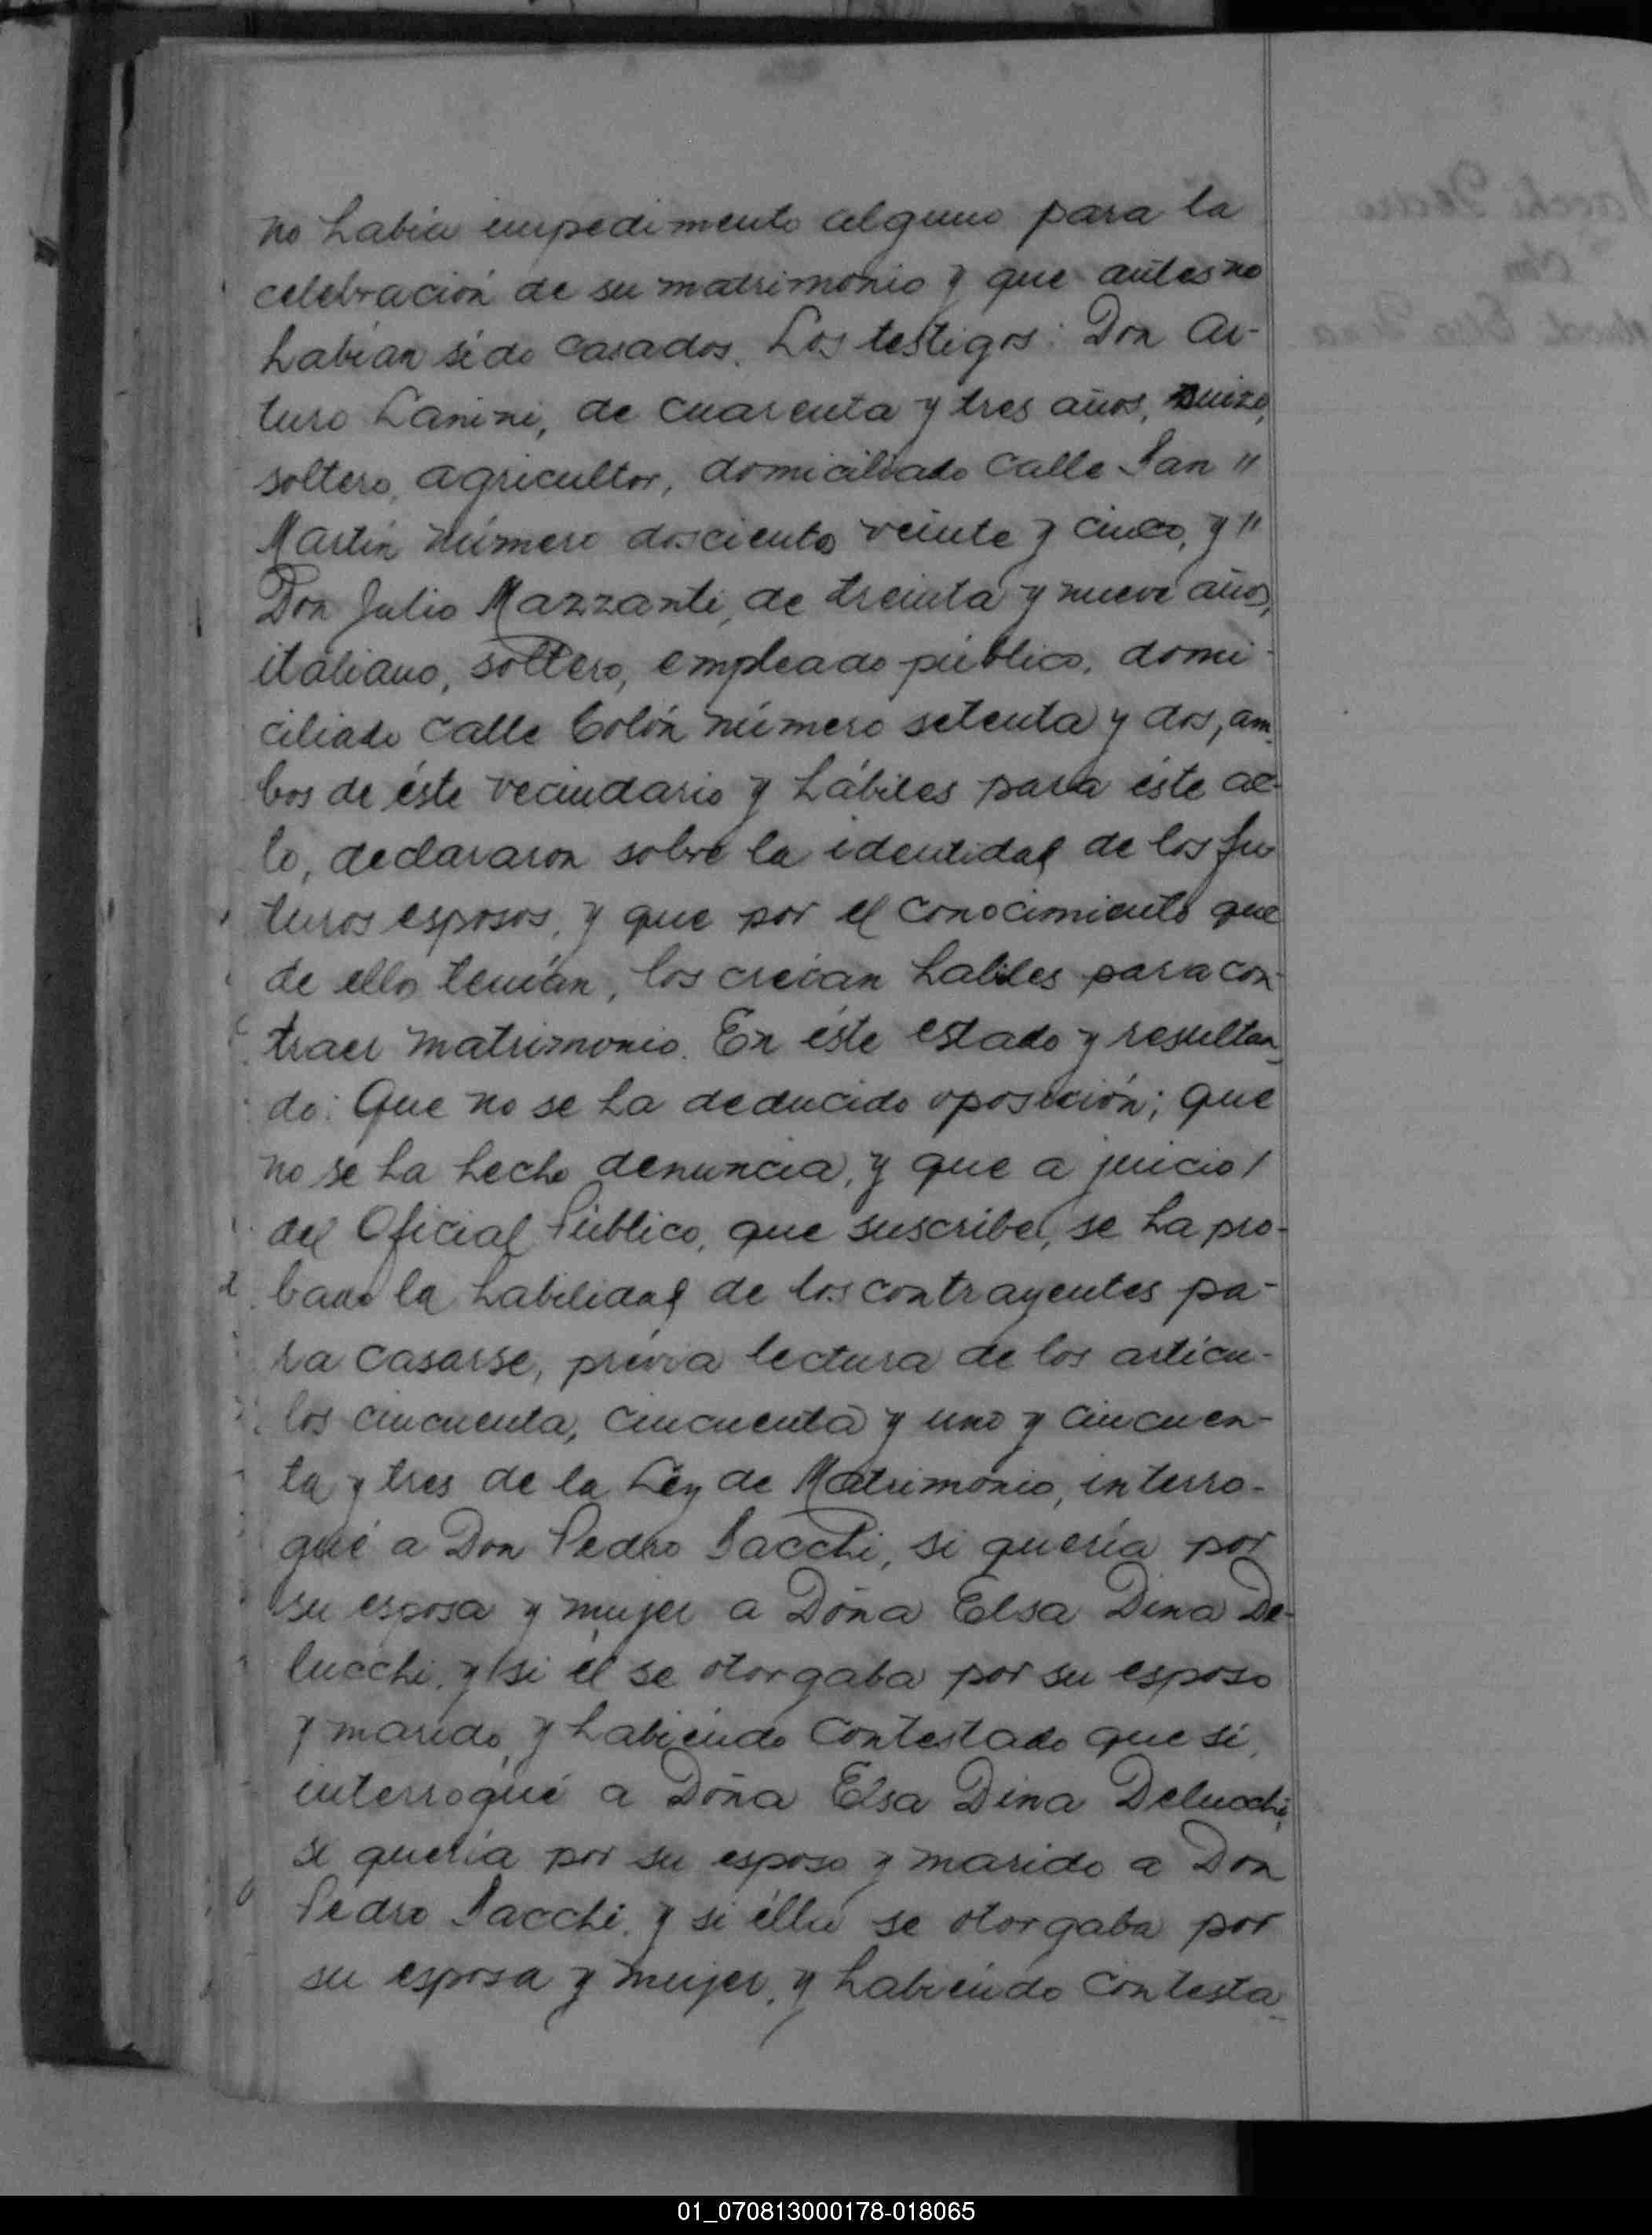 no había impedimento alguno para la
celebración de su matrimonio y que antes no
habían sido casados. Los testigos: Don Ar-
turo Lanini, de cuarenta y tres años, suizo,
soltero, agricultor, domiciliado calle San "
Martín número doscientos veinte y cinco, y "
Don Julio Mazzanti, de treinta y nueve años,
italiano, soltero, empleado público, domi-
ciliado calle Colón número setenta y dos, am-
bos de éste vecindario y hábiles para éste ac-
to, declararon sobre la identidad de los fu-
turos esposos, y que por el conocimiento que
de ellos tenían, los creían habiles para con-
traer matrimonio. En éste estado y resultan-
do: Que no se ha deducido oposición; que
no se ha hecho denuncia, y que a juicio /
del Oficial Público, que suscribe, se ha pro-
bado la habilidad de los contrayentes pa-
ra casarse, prévia lectura de los artícu-
los cincuenta, cincuenta y uno y cincuen-
ta y tres de la Ley de Matrimonio, interro-
gué a Don Pedro Sacchi, si quería por
su esposa y mujer a Doña Elsa Dina De-
lucchi, y si él se otorgaba por su esposo
y marido, y habiendo contestado que sí,
interrogué a Doña Elsa Dina Delucchi,
si quería por su esposo y marido a Don
Pedro Sacchi, y si élla se otorgaba por
su esposa y mujer, y habiendo contesta-
01_070813000178-018065